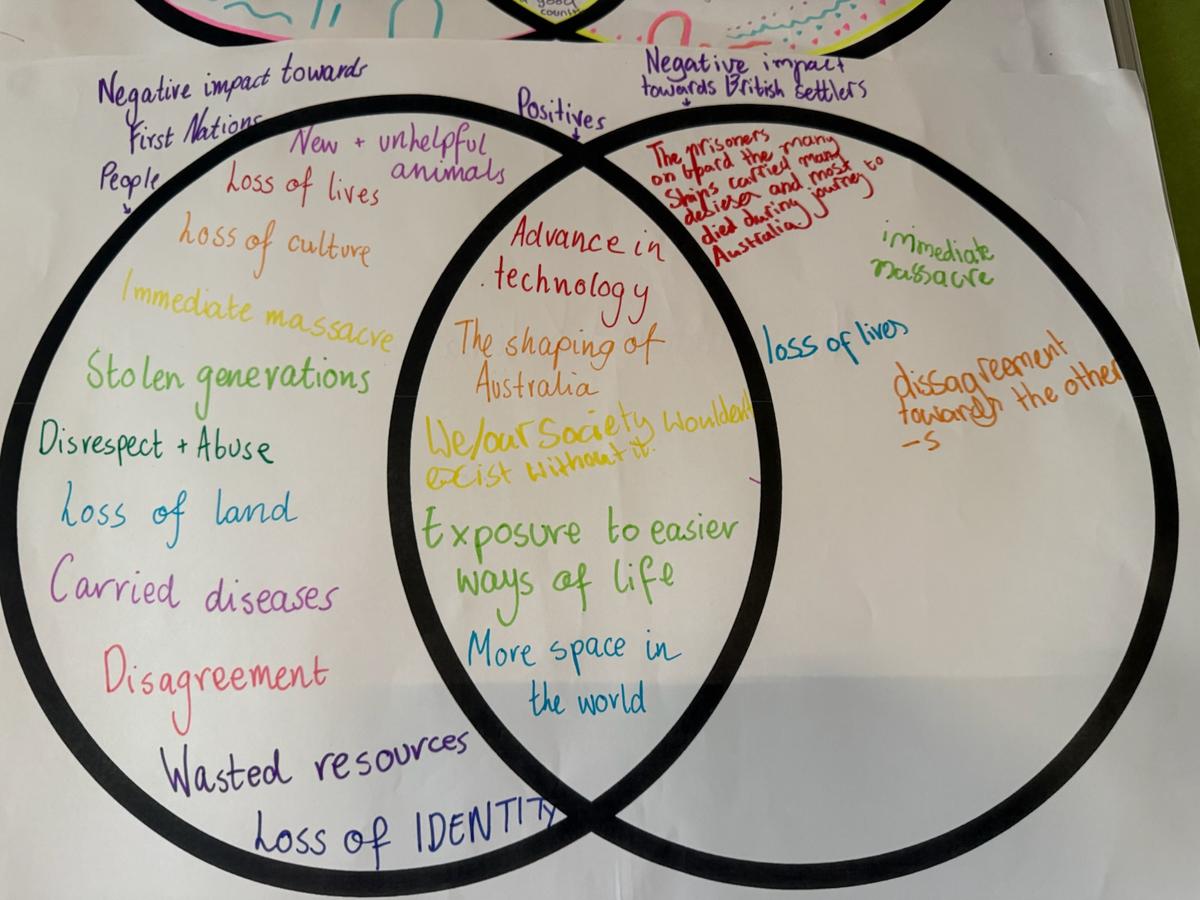 good
count
Negative impact towards
First Nations
People
Negative impact
towards British settlers
Positives
New + unhelpful
animals
Loss of lives
Loss of culture
Immediate massacre
Stolen generations
Disrespect + Abuse
Loss of land
Carried diseases
Disagreement
Wasted resources
Loss of IDENTITY
Advance in
technology
The shaping of
Australia
We/our Society wouldent
excist without it.
Exposure to easier
ways of life
More space in
the world
The prisoners
on board the many
Ships carried many
desieses and most
died during journey to
Australia
immediate
massacre
loss of lives
dissagreement
towards the other
-s